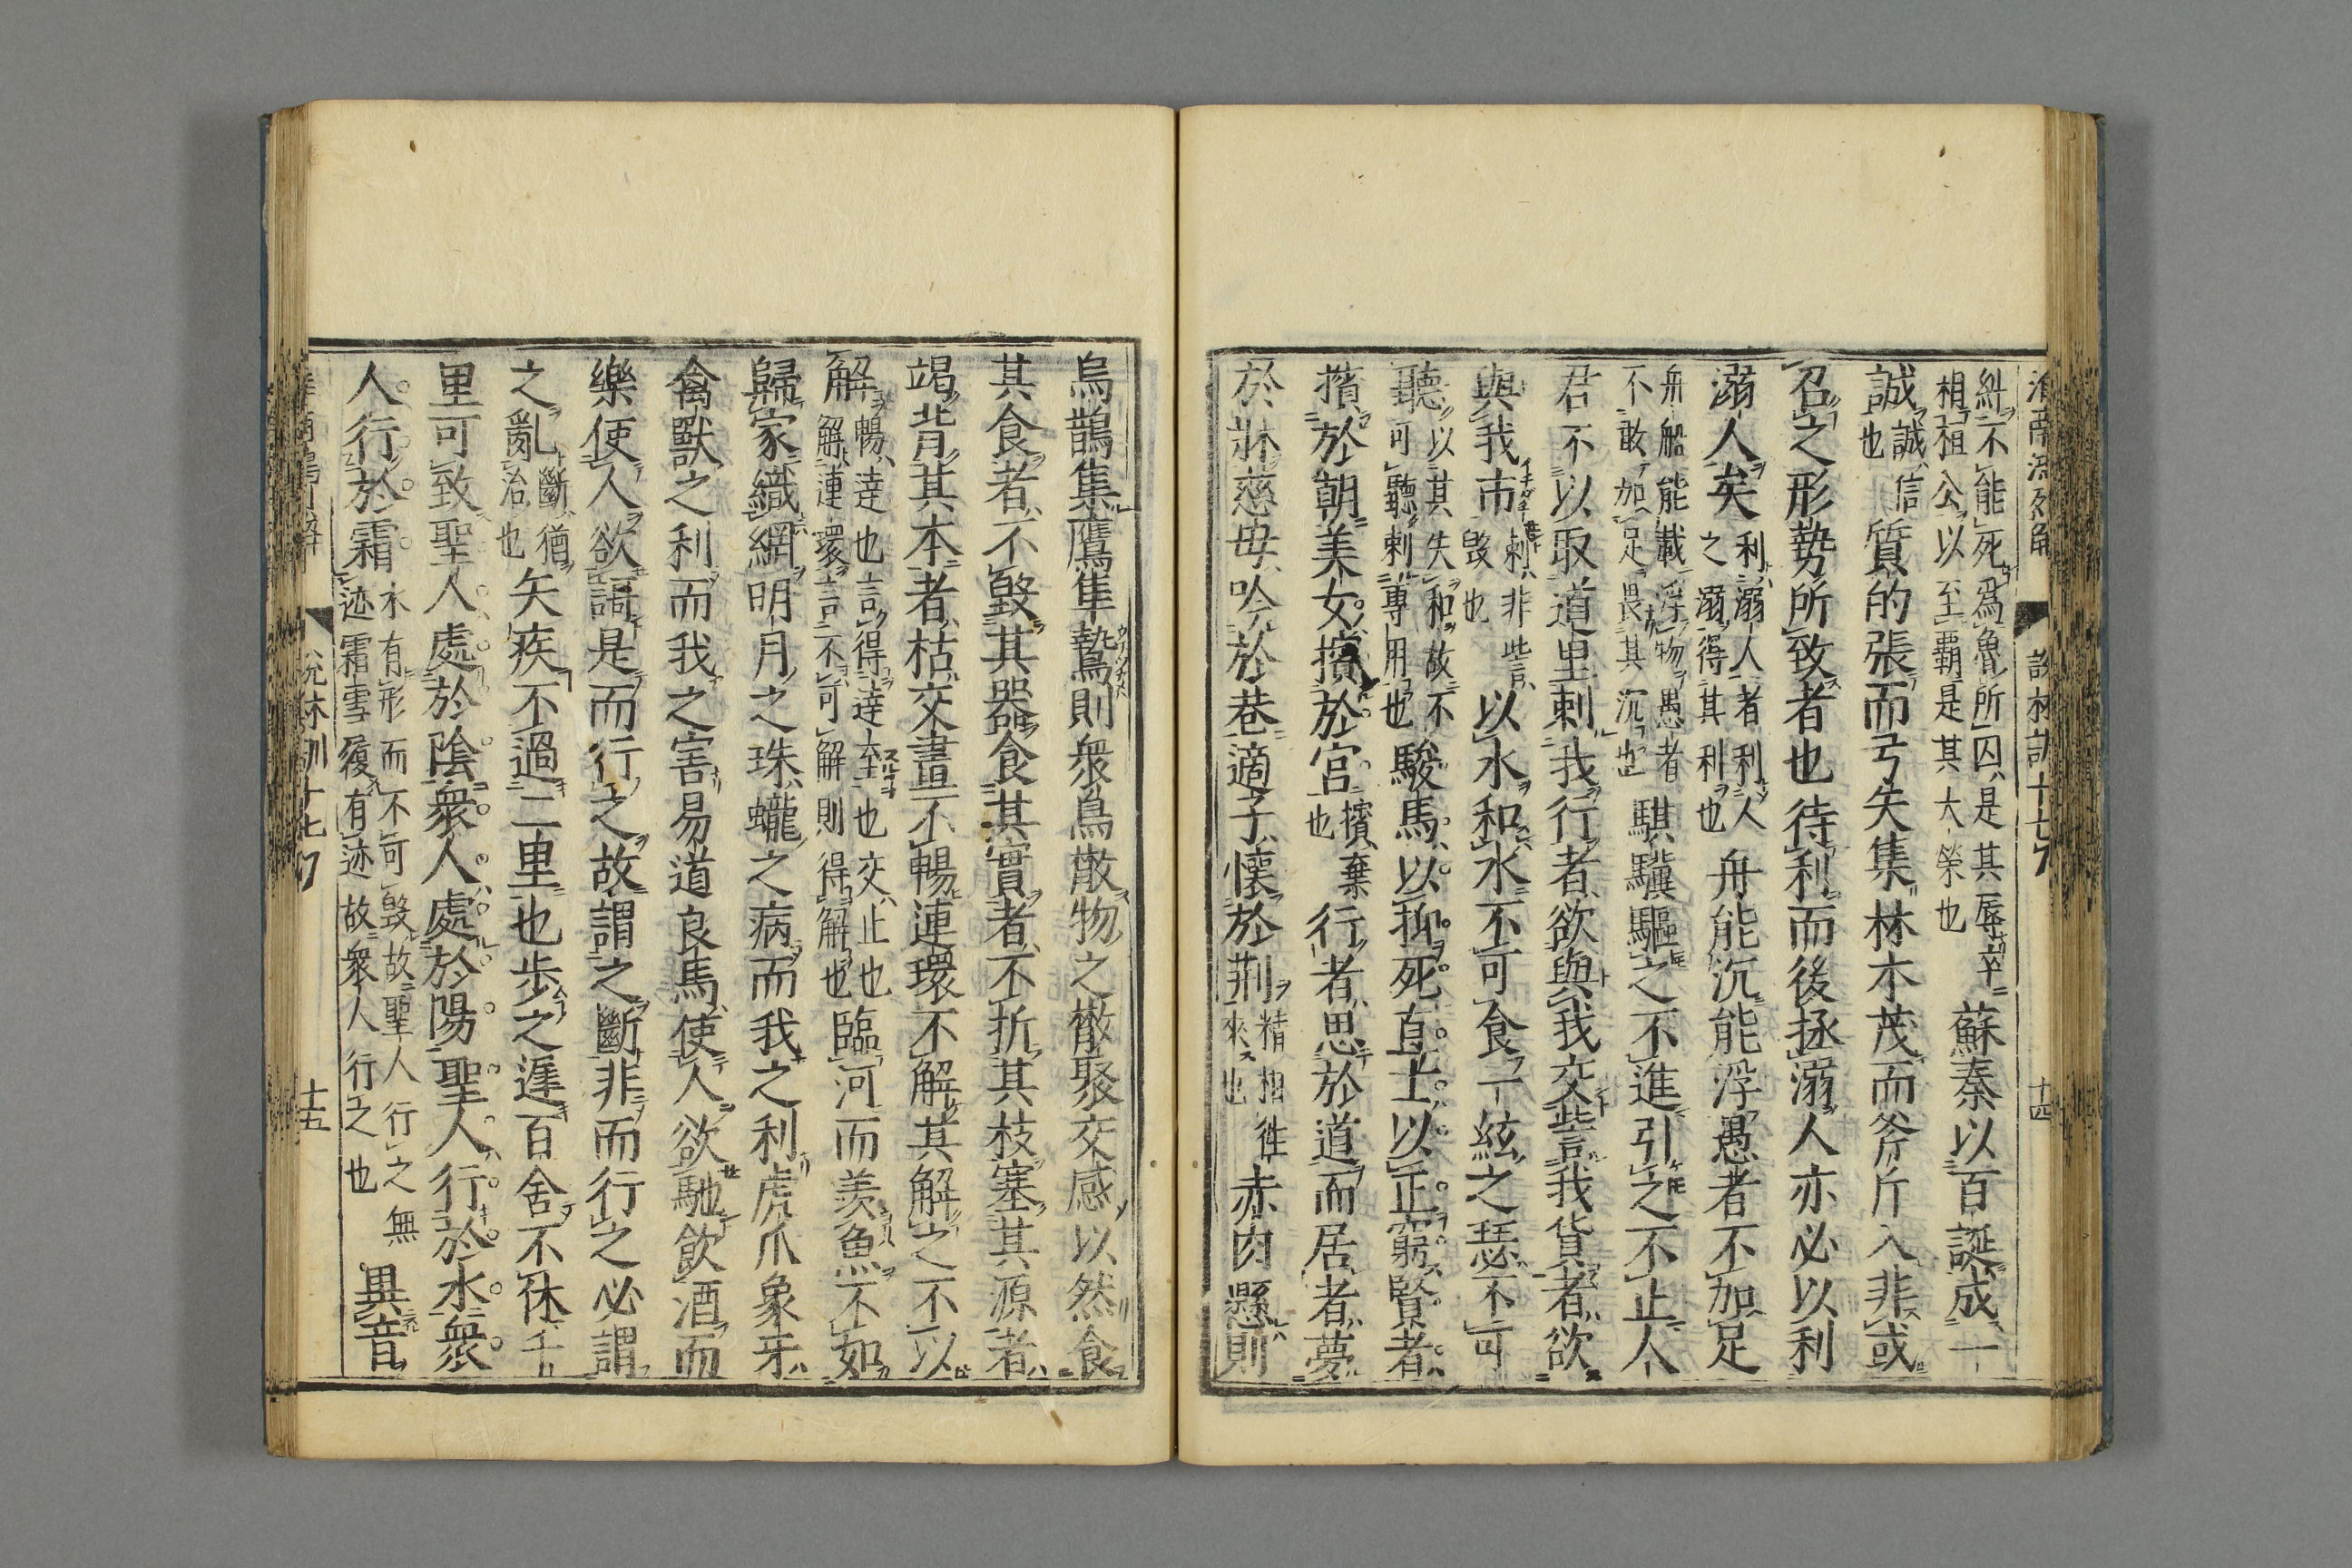 淮南鴻烈解 說林訓十七 十四
糾不能死爲魯所囚是其辱卒
相桓公以至覇是其大榮也
蘇秦以百誕成一
誠誠信也質的張而弓矢集林木茂而斧斤入非或
召之形勢所致者也待利而後拯溺人亦必以利
溺人矣利溺人者利人之溺得其利也舟能沉能浮愚者不加足
舟船能載浮物愚者不敢加足畏其沉也騏驥驅之不進引之不止人
君不以取道里刺我行者欲與我交訾我貨者欲
與我市刺非訾毀也以水和水不可食一絃之瑟不可
聽以其失和故不可聽刺專用也駿馬以抑死直士以正窮賢者
擯於朝美女擯於宮擯棄也行者思於道而居者夢
於牀慈母吟於巷適子懷於荆精相徃來也赤肉懸則
烏鵲集鷹隼鷙則衆鳥散物之散聚交感以然食
其食者不毀其器食其實者不折其枝塞其源者
竭背其本者枯交畫不暢連環不解其解之不以
解暢達也言得達至也交止也解連環言不可解則得解也臨河而羨魚不如
歸家織網明月之珠蠬之病而我之利虎爪象牙
禽獸之利而我之害易道良馬使人欲馳飲酒而
樂使人欲謌是而行之故謂之斷非而行之必謂
之亂斷猶治也矢疾不過二里也步之遲百舍不休千
里可致聖人處於陰衆人處於陽聖人行於水衆
人行於霜水有形而不可毀故聖人行之無迹霜雪履有迹故衆人行之也異音
說林訓十七 十五